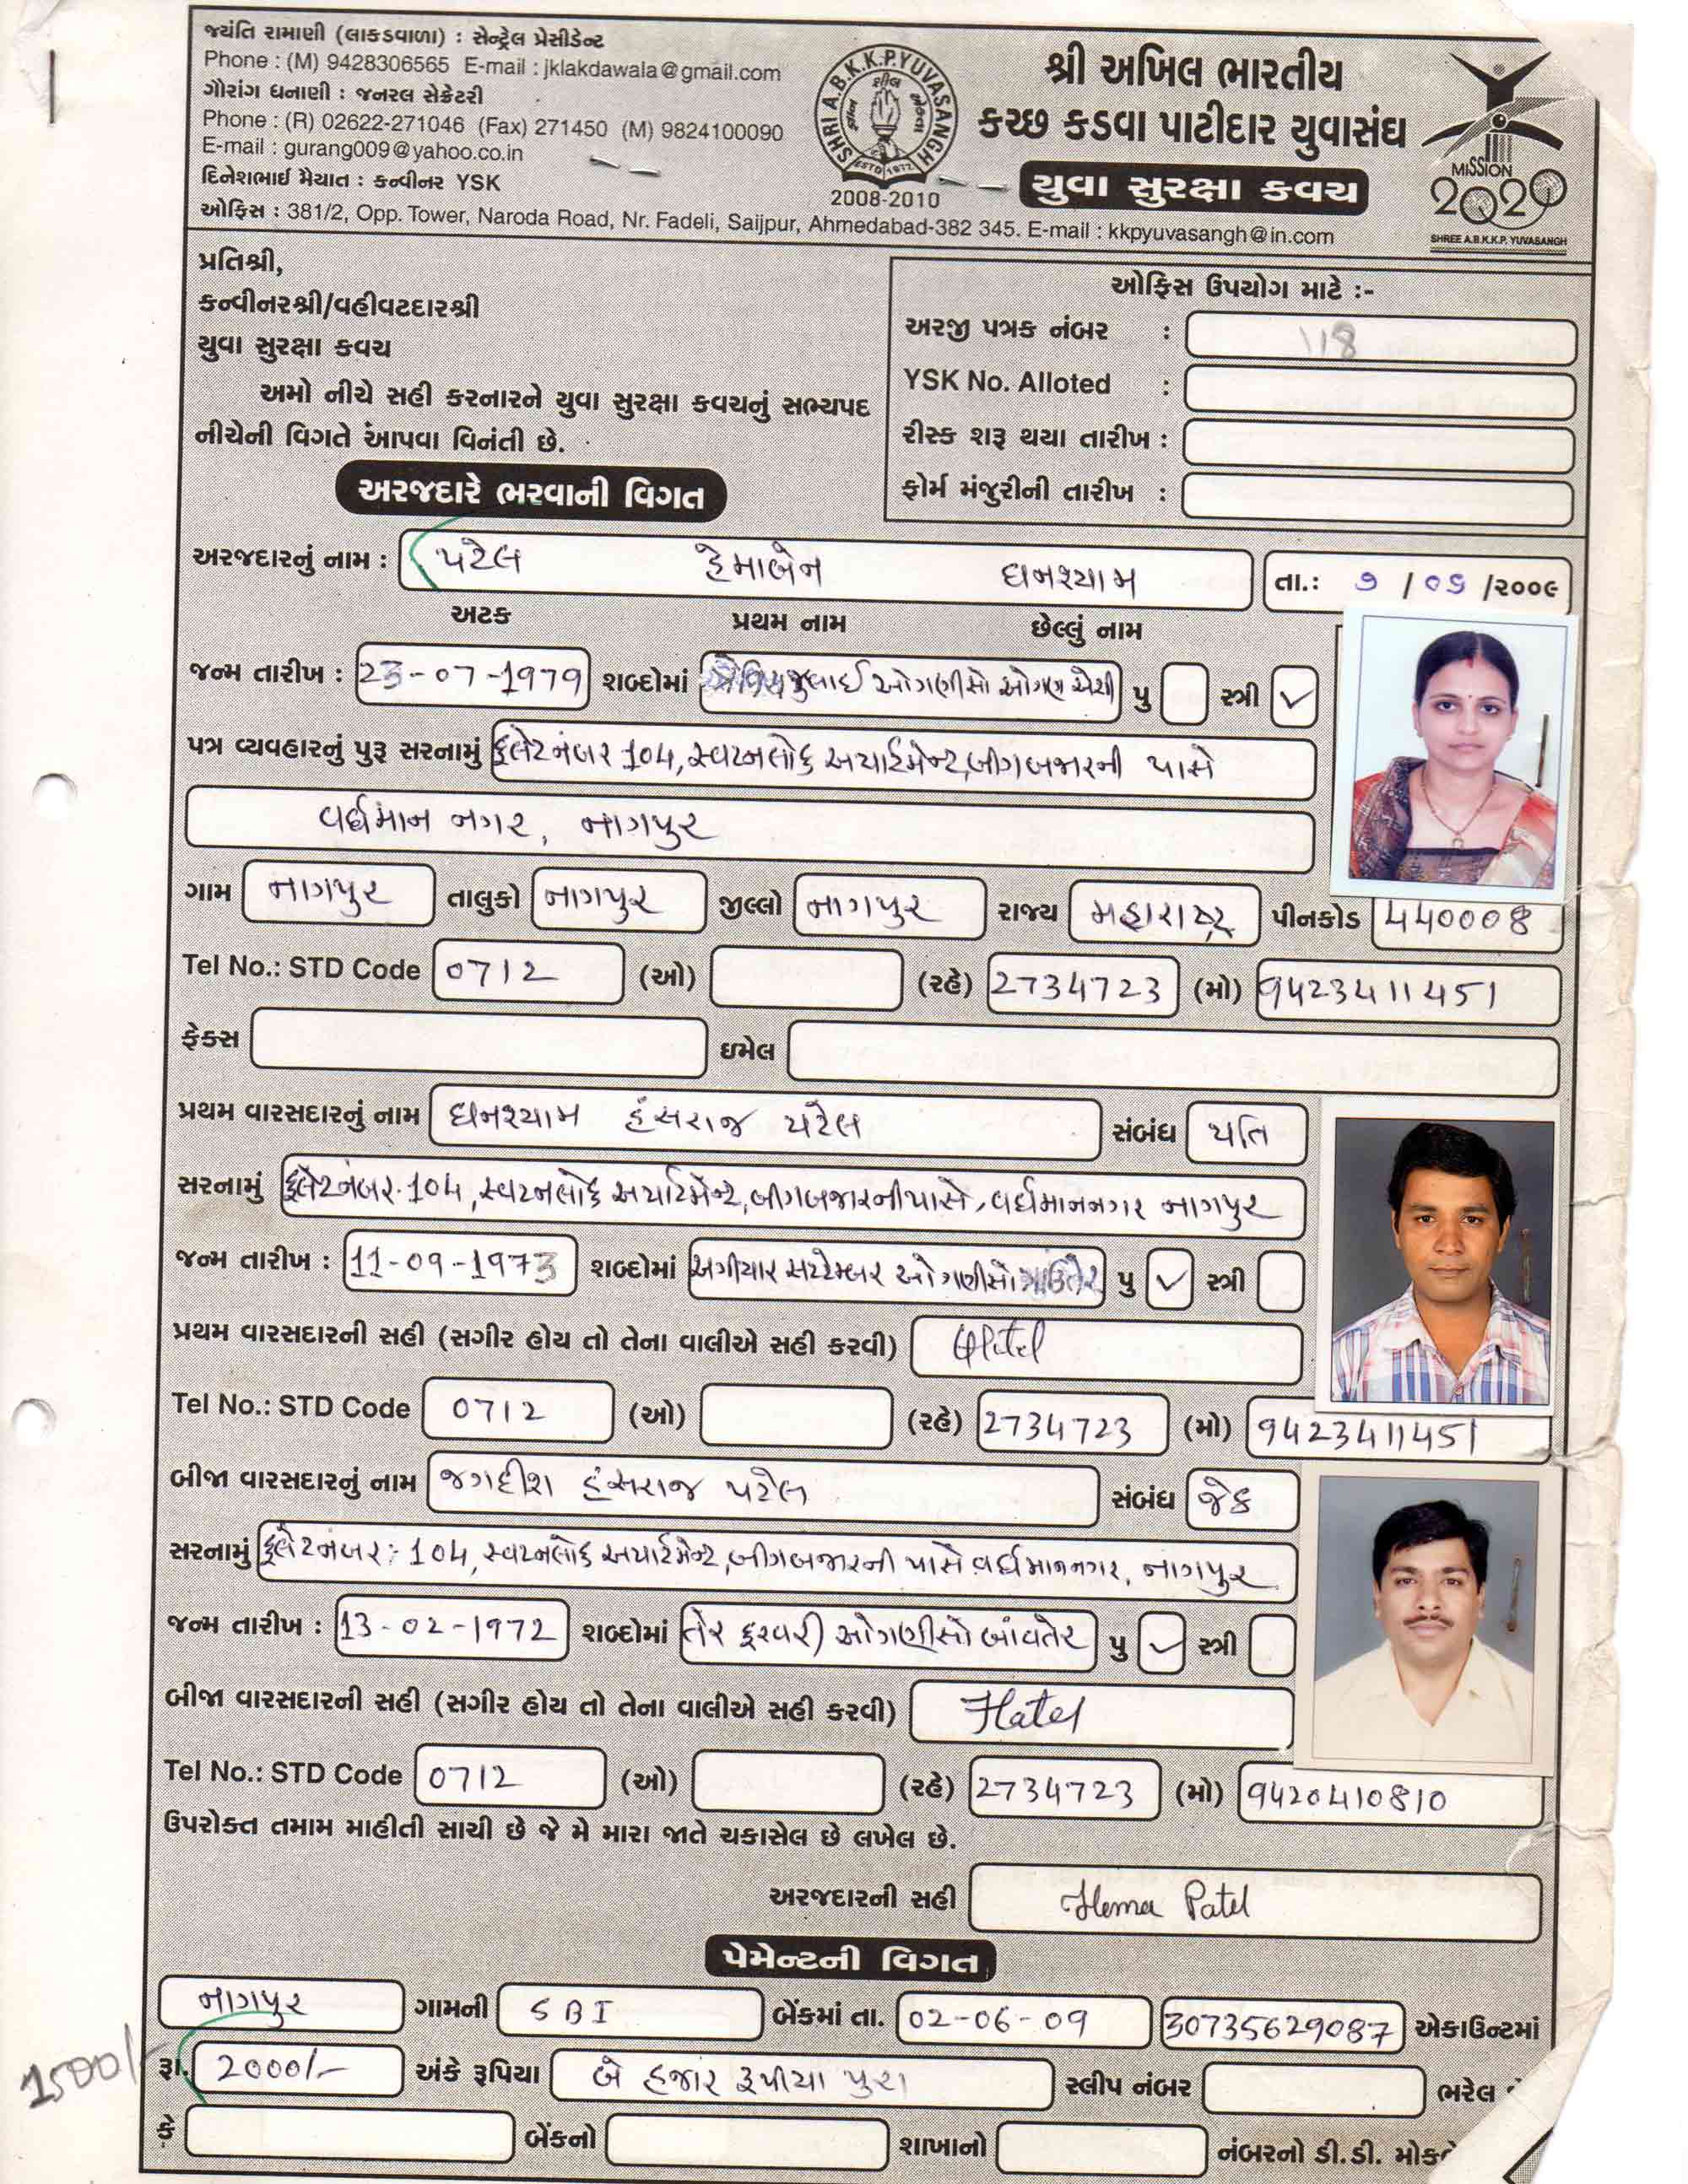 જ્યંતિ રામાણી (લાકડવાળા) : સેન્ટ્રલ પ્રેસીડેન્ટ
Phone : (M) 9428306565 E-mail : jklakdawala@gmail.com
ગૌરાંગ ધનાણી : જનરલ સેક્રેટરી
Phone : (R) 02622-271046 (Fax) 271450 (M) 9824100090
E-mail : gurang009@yahoo.co.in
દિનેશભાઈ મૈયાત : કન્વીનર YSK
ઓફિસ : 381/2, Opp. Tower, Naroda Road, Nr. Fadeli, Saijpur, Ahmedabad-382 345. E-mail : kkpyuvasangh@in.com
SHRI A.B.K.K.P.YUVASANGH
ESTD 1977
2008-2010
શ્રી અખિલ ભારતીય
કચ્છ કડવા પાટીદાર યુવાસંઘ
યુવા સુરક્ષા કવચ
MISSION
2020
SHREE A.B.K.K.P. YUVASANGH
પ્રતિશ્રી,
કન્વીનરશ્રી/વહીવટદારશ્રી
યુવા સુરક્ષા કવચ
અમો નીચે સહી કરનારને યુવા સુરક્ષા કવચનું સભ્યપદ
નીચેની વિગતે આંપવા વિનંતી છે.
ઓફિસ ઉપયોગ માટે :-
અરજી પત્રક નંબર : 118
YSK No. Alloted :
રીસ્ક શરૂ થયા તારીખ :
ફોર્મ મંજુરીની તારીખ :
અરજદારે ભરવાની વિગત
અરજદારનું નામ : પટેલ હેમાબેન ઘનશ્યામ તા.: ૭ / ૦૬ /૨૦૦૯
અટક પ્રથમ નામ છેલ્લું નામ
જન્મ તારીખ : 23-07-1979 શબ્દોમાં જુલાઈ ઓગણીસો ઓગણ એસી પુ સ્ત્રી ✓
પત્ર વ્યવહારનું પુરૂ સરનામું ફ્લેટ નંબર 104, સ્વપ્નલોક અપાર્ટમેન્ટ, બીગબજારની પાસે
વર્ધમાન નગર, નાગપુર
ગામ નાગપુર તાલુકો નાગપુર જીલ્લો નાગપુર રાજ્ય મહારાષ્ટ્ર પીનકોડ 440008
Tel No.: STD Code 0712 (ઓ) (રહે) 2734723 (મો) 9423411451
ફેક્સ ઇમેલ
પ્રથમ વારસદારનું નામ ઘનશ્યામ હંસરાજ પટેલ સંબંધ પતિ
સરનામું ફ્લેટ નંબર.104, સ્વપ્નલોક અપાર્ટમેન્ટ, બીગબજારની પાસે, વર્ધમાનનગર નાગપુર
જન્મ તારીખ : 11-09-1973 શબ્દોમાં અગીયાર સપ્ટેમ્બર ઓગણીસો પુ ✓ સ્ત્રી
પ્રથમ વારસદારની સહી (સગીર હોય તો તેના વાલીએ સહી કરવી)
Tel No.: STD Code 0712 (ઓ) (રહે) 2734723 (મો) 9423411451
બીજા વારસદારનું નામ જગદીશ હંસરાજ પટેલ સંબંધ જેઠ
સરનામું ફ્લેટ નંબર: 104, સ્વપ્નલોક અપાર્ટમેન્ટ, બીગબજારની પાસે વર્ધમાનનગર, નાગપુર
જન્મ તારીખ : 13-02-1972 શબ્દોમાં તેર ફરવરી ઓગણીસો બાંવતેર પુ ✓ સ્ત્રી
બીજા વારસદારની સહી (સગીર હોય તો તેના વાલીએ સહી કરવી)
Tel No.: STD Code 0712 (ઓ) (રહે) 2734723 (મો) 9420410810
ઉપરોક્ત તમામ માહીતી સાચી છે જે મે મારા જાતે ચકાસેલ છે લખેલ છે.
અરજદારની સહી Hema Patel
પેમેન્ટની વિગત
નાગપુર ગામની SBI બેંકમાં તા. 02-06-09 30735629087 એકાઉન્ટમાં
1500/- રૂા. 2000/- અંકે રૂપિયા બે હજાર રૂપીયા પુરા સ્લીપ નંબર ભરેલ
કે બેંકનો શાખાનો નંબરનો ડી.ડી.